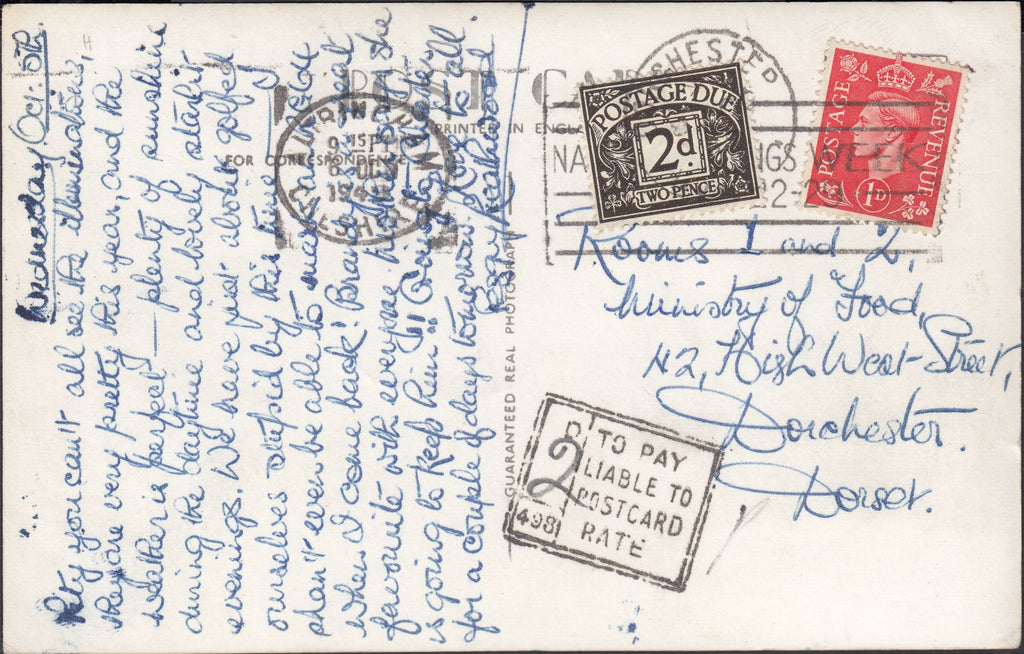 Wednesday Oct: 5th
Pity you can't all see the illuminations,
they are very pretty this year, and the
weather is perfect — plenty of sunshine
during the daytime and lovely starlit
evenings. We have just about golfed
ourselves stupid by this time
shan't even be able to make a date
when I come back! Brandy is a great
favourite with everyone here — she
is going to keep him!!
for a couple of days tomorrow. Love to all
Kay Heathwood
POST CARD
FOR CORRESPONDENCE
PRINTED IN ENGLA
GUARANTEED REAL PHOTOGRAPH
ALTRINCHAM
CHESHIRE
CHESTER
NA
NGS WEEK
POSTAGE DUE
2d.
TWO PENCE
POSTAGE
REVENUE
1D
Rooms 1 and 2,
Ministry of Food,
42, High West Street,
Dorchester.
Dorset.
2D
TO PAY
LIABLE TO
POSTCARD
RATE
498